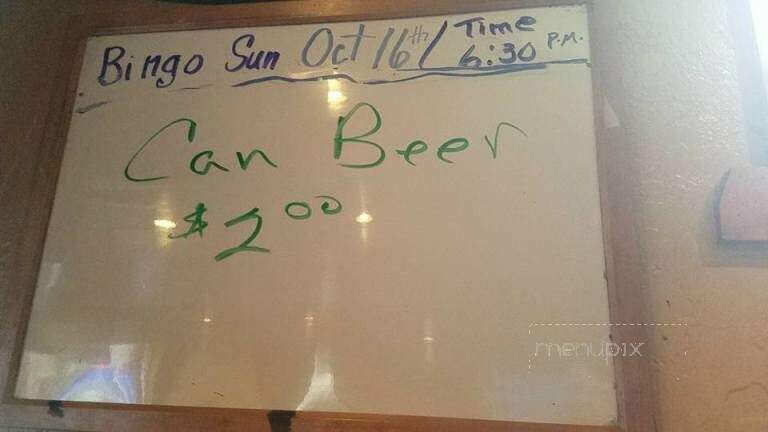 Bingo Sun Oct 16th / Time 6:30 P.M.
Can Beer
$2.00
menupix